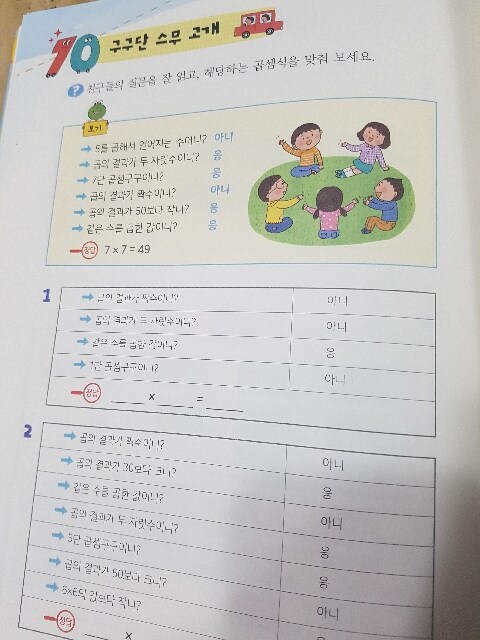 10 구구단 스무 고개
? 친구들의 질문을 잘 읽고, 해당하는 곱셈식을 맞춰 보세요.
보기
5를 곱해서 얻어지는 수이니? 아니
곱의 결과가 두 자릿수이니? 응
7단 곱셈구구이니? 응
곱의 결과가 짝수이니? 아니
곱의 결과가 50보다 작니? 응
같은 수를 곱한 값이니? 응
정답 7 × 7 = 49
1
곱의 결과가 짝수이니? 아니
곱의 결과가 두 자릿수이니? 아니
같은 수를 곱한 값이니? 응
1단 곱셈구구이니? 아니
정답 × =
2
곱의 결과가 짝수이니? 아니
곱의 결과가 30보다 크니? 응
같은 수를 곱한 값이니? 아니
곱의 결과가 두 자릿수이니? 응
5단 곱셈구구이니? 응
곱의 결과가 50보다 크니? 아니
6×6의 값보다 작니?
정답 ×